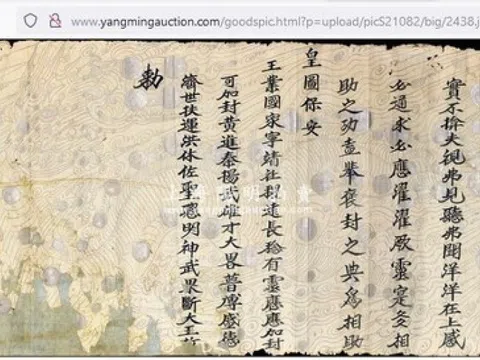 www.yangmingauction.com/goodspic.html?p=upload/picS21082/big/2438.j
實不揜夫視弗見聽弗聞洋洋在上感
必通求必應濯濯厥靈寔多相
助之功查舉褒封之典爲相助
皇圖保安
王業國家寧靖社稷延長稔有靈應應加封
可加封黄進奏揚武雄才大畧普博盛德
濟世扶運洪休佐聖聰明神武果斷大王
勅